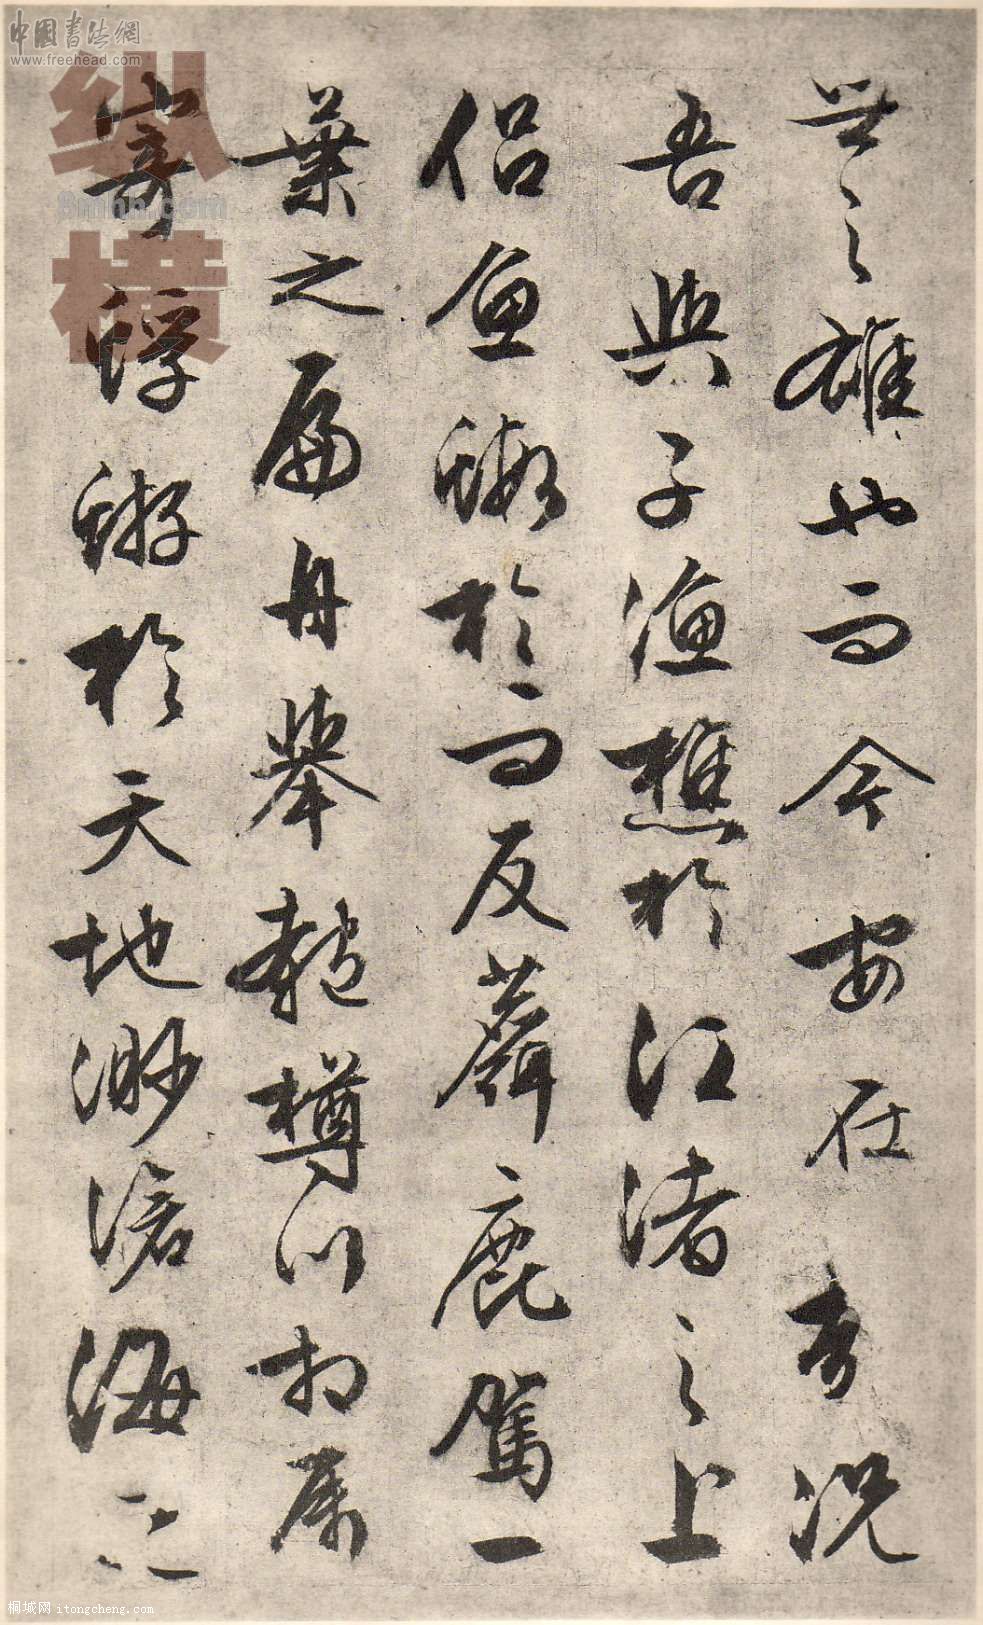 世之雄也而今安在哉况
吾與子漁樵於江渚之上
侶魚蝦於而友鹿駕一
葉之扁舟舉匏樽以相属
寄蜉蝣於天地渺滄海
中国書法網
www.freehead.com
纵横
8mhh.com
桐城网 itongcheng.com